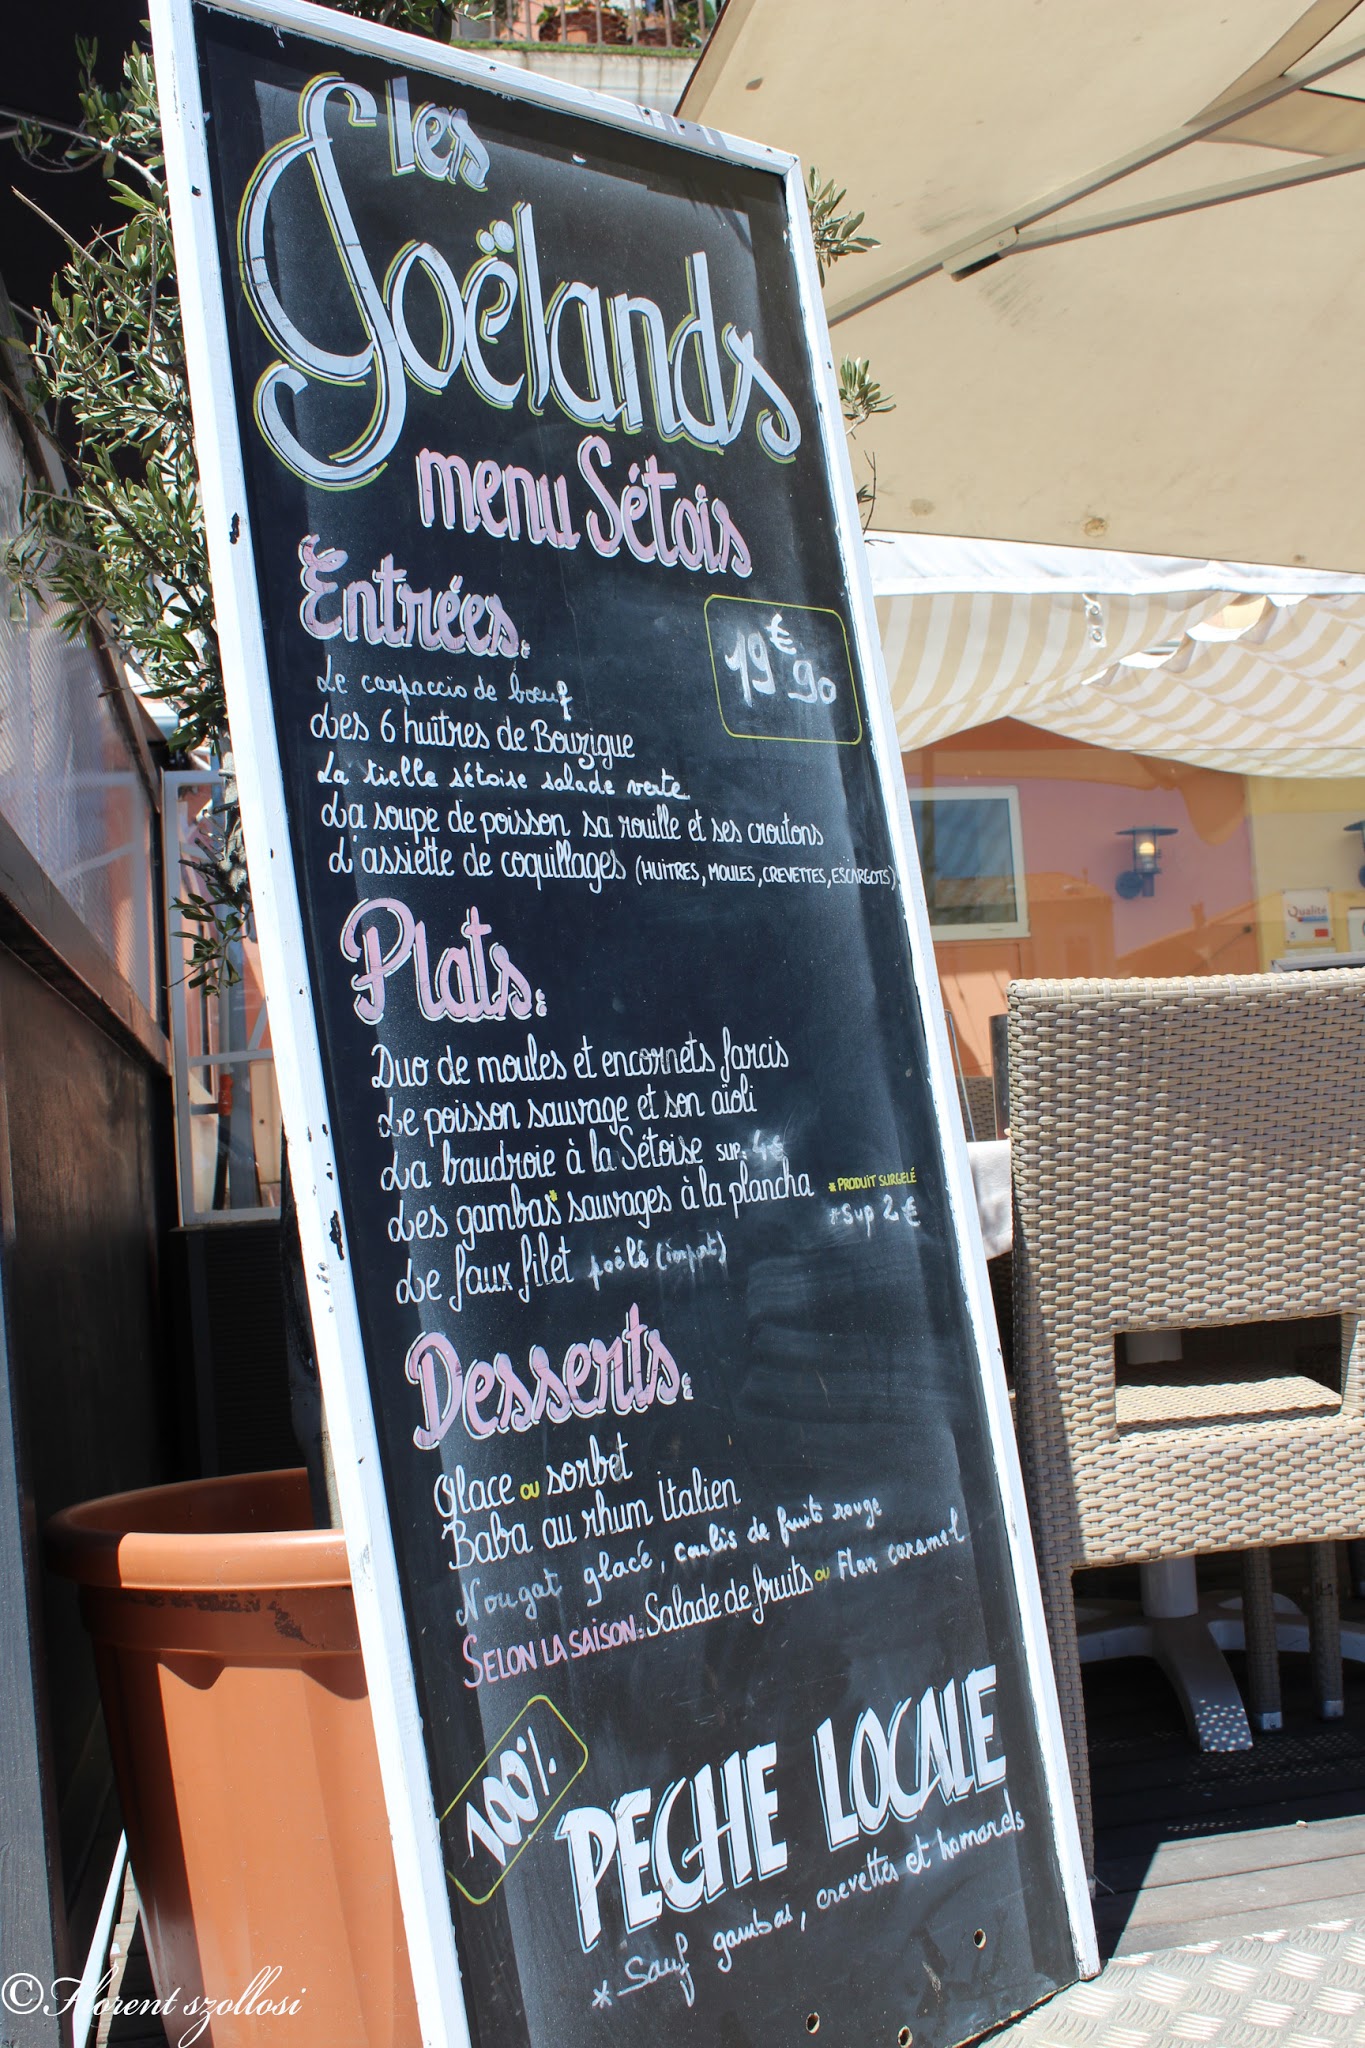 Les
Goëlands
menu Sétois
Entrées:
19€90
Le carpaccio de bœuf
Les 6 huîtres de Bouzigue
La tielle sétoise salade verte
La soupe de poisson sa rouille et ses croutons
L'assiette de coquillages (HUITRES, MOULES, CREVETTES, ESCARGOTS)
Plats:
Duo de moules et encornets farcis
Le poisson sauvage et son aïoli
La baudroie à la Sétoise SUP: 4€
Les gambas* sauvages à la plancha * PRODUIT SURGELÉ
*Sup 2€
Le faux filet poêlé (import)
Desserts:
Glace ou sorbet
Baba au rhum Italien
Nougat glacé, coulis de fruits rouge
SELON LA SAISON: Salade de fruits ou Flan caramel
100%
PECHE LOCALE
* Sauf gambas, crevettes et homards
Qualité
© Florent szollosi